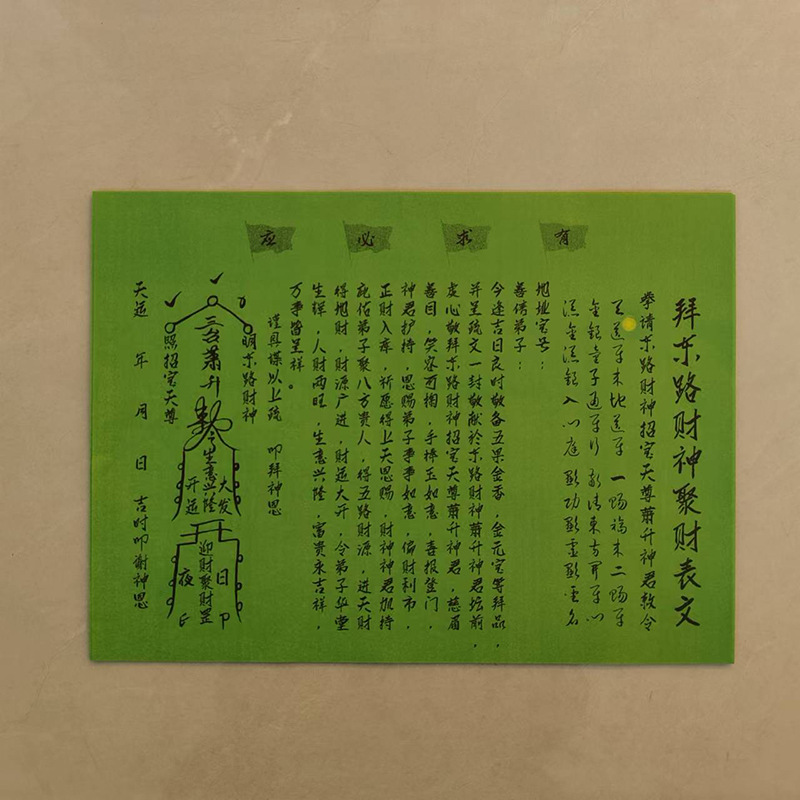 有求必应
拜东路财神聚财表文
拳请东路财神招宝天尊萧升神君敕令
天送军来地送军 一赐福来二赐军
金银童子通军行 敬请东方界军
添金添银入门庭 显功显灵显圣名
地址宅号：
善信弟子：
今逢吉日良时敬备五果金香，金元宝等拜品，
并呈疏文一封敬献於东路财神萧升神君坛前，
虔心敬拜东路财神招宝天尊萧升神君，慈眉
善目，笑容可掬，手捧玉如意，喜报登门，
神君护持，恩赐弟子事事如意，偏财利市，
正财入库，祈愿得上天恩赐，财神神君加持
庇佑弟子聚八方贵人，得五路财源，进天财
得地财，财源广进，财运大开，令弟子华堂
生辉，人财两旺，生意兴隆，富贵永吉祥，
万事皆呈祥。
谨具谍以上疏 叩拜神恩
明东路财神
三台萧升
大发
生意兴隆
开运
迎财聚财罡
日
夜
照招宝天尊
天运 年 月 日 吉时叩谢神恩